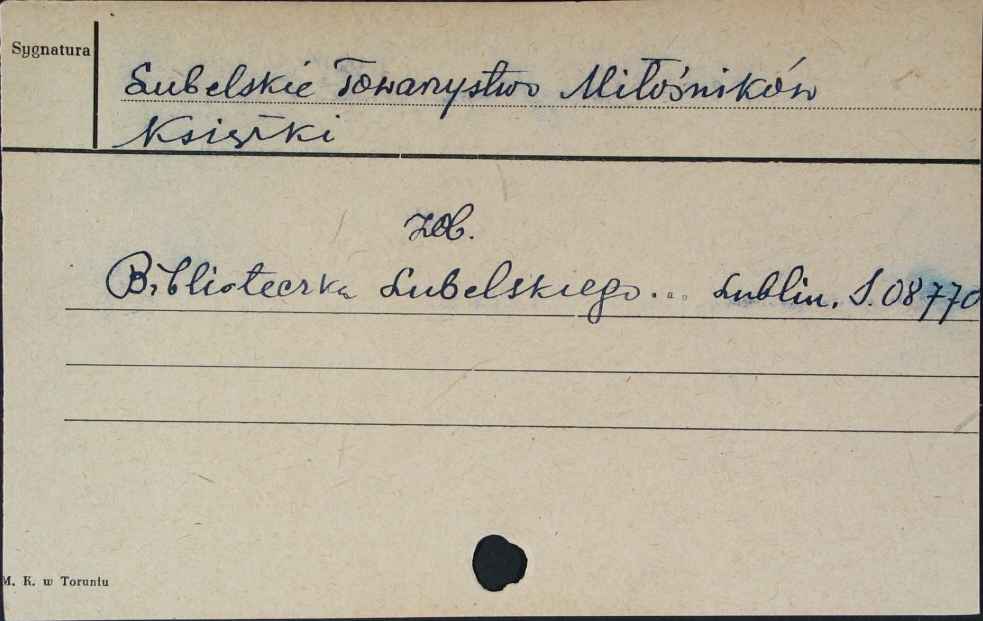 Sygnatura
Lubelskie Towarzystwo Miłośników
Książki
zob.
Biblioteczka Lubelskiego ... Lublin, S. 08770
M. K. w Toruniu